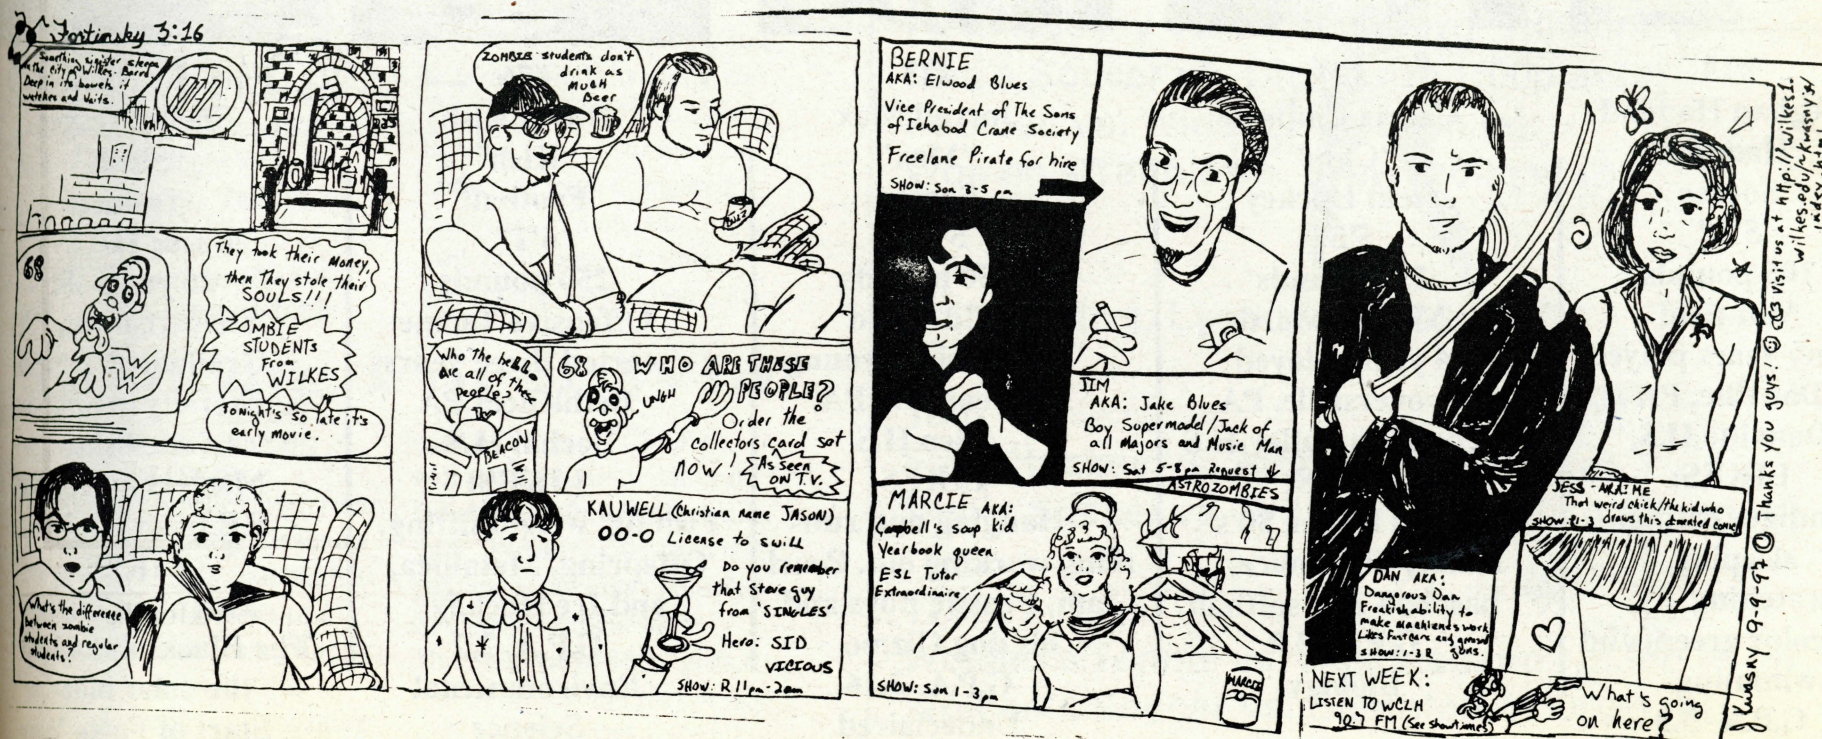 Fortinsky 3:16
Something sinister sleeps
in the city of Wilkes-Barre.
Deep in its bowels it
watches and Waits.
68
They took their money,
then they stole their
SOULS!!!
ZOMBIE
STUDENTS
From
WILKES
Tonight's so late it's
early movie.
What's the difference
between zombie
students and regular
students?
ZOMBIE students don't
drink as
MUCH
Beer
Who the hell
are all of these
people?
The
BEACON
68
WHO ARE THESE
PEOPLE?
UNGH
Order the
collectors card set
NOW!
As seen
ON T.V.
KAUWELL (Christian name JASON)
00-0 License to swill
Do you remember
that Steve guy
from 'SINGLES'
Hero: SID
VICIOUS
SHOW: R 11pm-2am
BERNIE
AKA: Elwood Blues
Vice President of The Sons
of Ichabod Crane Society
Freelane Pirate for hire
SHOW: Sun 3-5 pm
JIM
AKA: Jake Blues
Boy Supermodel/Jack of
all Majors and Music Man
SHOW: Sat 5-8pm Request
MARCIE AKA:
Campbell's soup kid
Yearbook queen
ESL Tutor
Extraordinaire
SHOW: Sun 1-3pm
ASTROZOMBIES
MARCIE
DAN AKA:
Dangerous Dan
Freakish ability to
make machines work
Likes fast cars and
guns.
SHOW: 1-3 R
JESS - AKA: ME
That weird chick/the kid who
draws this demented comic
SHOW: 1-3
NEXT WEEK:
LISTEN TO WCLH
90.7 FM (See showtimes)
What's going
on here?
J Kwasny 9-9-97 Thanks you guys! Visit us at http://wilkes1.
wilkes.edu/~kwasny
index.html